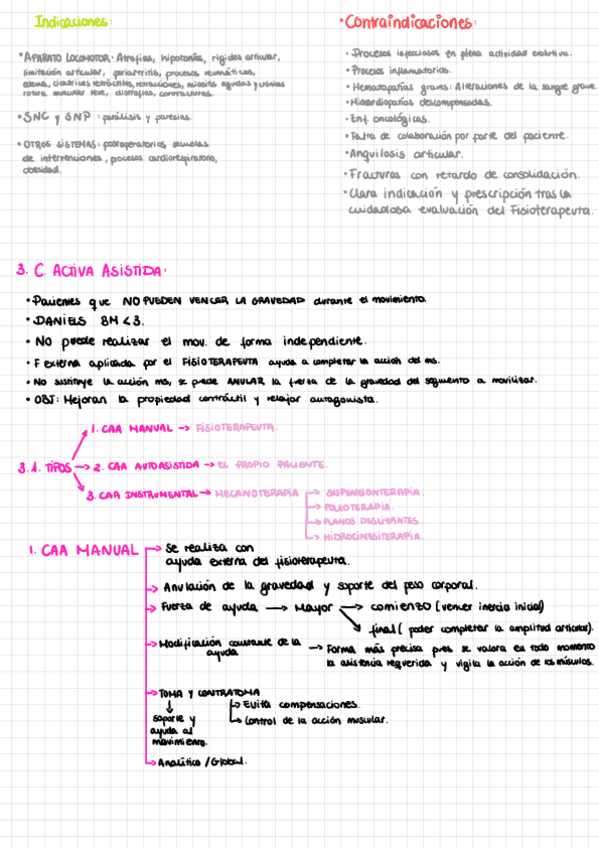 Indicaciones:
• APARATO LOCOMOTOR: Atrofias, hipotonías, rigidez articular,
limitación articular, periartritis, procesos reumáticos,
edema, cicatrices retráctiles, retracciones, miositis agudas y crónicas
rotura muscular leve, distrofias, contracturas.
• SNC y SNP: parálisis y paresias.
• OTROS SISTEMAS: postoperatorios secuelas
de intervenciones, procesos cardiorespiratorio,
obesidad.
• Contraindicaciones:
• Procesos infecciosos en plena actividad evolutiva.
• Procesos inflamatorios.
• Hematopatías graves: Alteraciones de la sangre grave.
• Miocardiopatías descompensadas.
• Enf. oncológicas.
• Falta de colaboración por parte del paciente.
• Anquilosis articular.
• Fracturas con retardo de consolidación.
• Clara indicación y prescripción tras la
cuidadosa evaluación del Fisioterapeuta.
3. C. ACTIVA ASISTIDA:
• Pacientes que NO PUEDEN VENCER LA GRAVEDAD durante el movimiento
• DANIELS BM < 3.
• NO puede realizar el mov. de forma independiente.
• F externa aplicada por el FISIOTERAPEUTA ayuda a completar la acción del ms.
• No sustituye la acción ms, se puede ANULAR la fuerza de la gravedad del segmento a movilizar.
• OBJ: Mejoran la propiedad contráctil y relajar antagonista.
3.1. TIPOS
1. CAA MANUAL → FISIOTERAPEUTA.
2. CAA AUTOASISTIDA → EL PROPIO PACIENTE.
3. CAA INSTRUMENTAL → MECANOTERAPIA
→ SUSPENSIONTERAPIA.
→ POLEOTERAPIA.
→ PLANOS DESLIZANTES.
→ HIDROCINESITERAPIA.
1. CAA MANUAL
→ Se realiza con
ayuda externa del fisioterapeuta.
→ Anulación de la gravedad y soporte del peso corporal.
→ Fuerza de ayuda → Mayor → comienzo (vencer inercia inicial)
final (poder completar la amplitud articular).
→ Modificación constante de la
ayuda
→ Forma más precisa pues se valora en todo momento
la asistencia requerida y vigila la acción de los músculos.
→ TOMA Y CONTRATOMA
soporte y
ayuda al
movimiento.
→ Evita compensaciones.
→ Control de la acción muscular.
→ Analítico / Global.